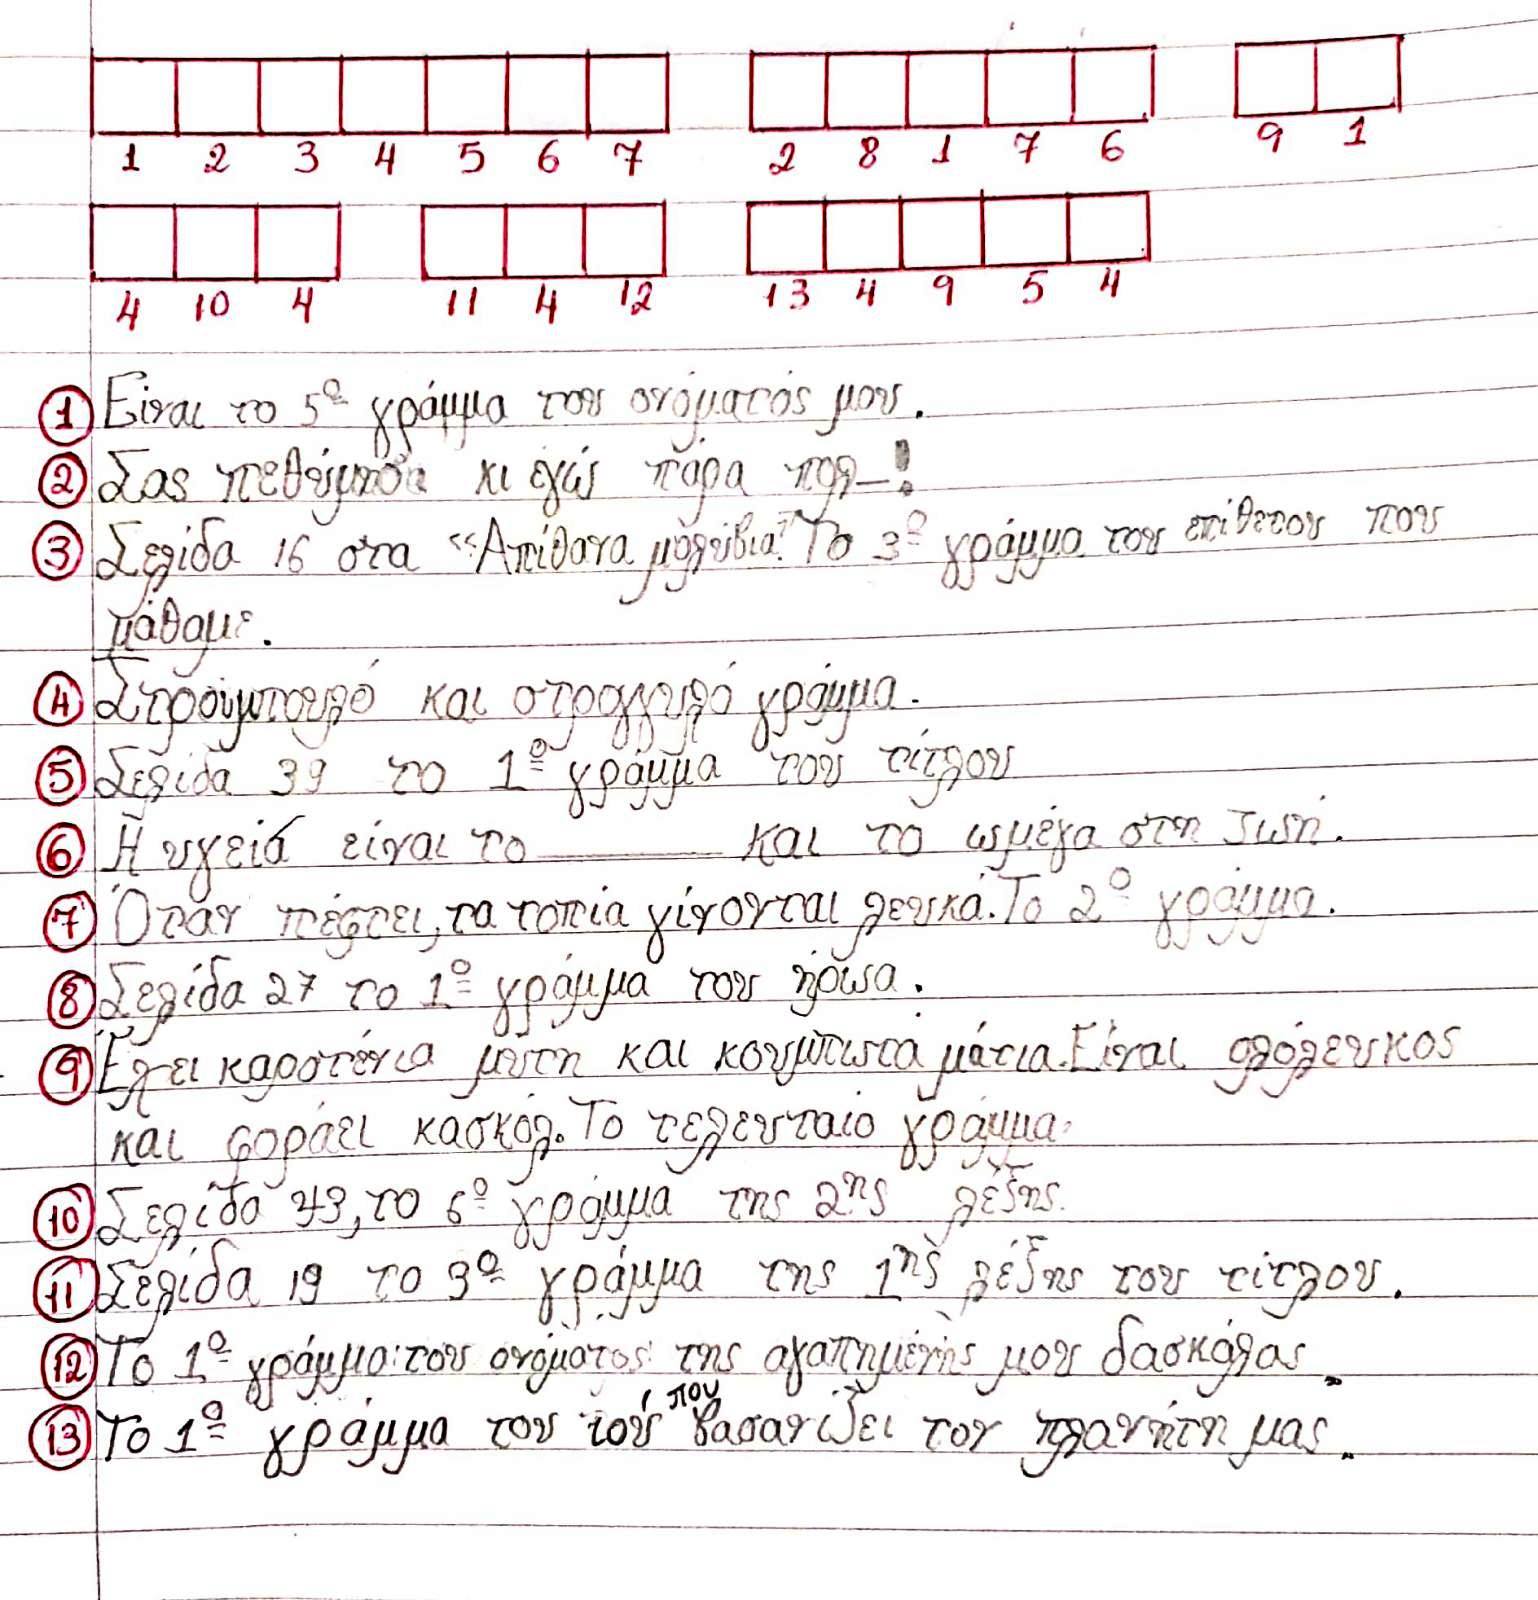 1 2 3 4 5 6 7 2 8 1 7 6 9 1
4 10 4 11 4 12 13 4 9 5 4
1 Είναι το 5º γράμμα του ονόματός μου.
2 Σας πεθύμησα κι εγώ πάρα πολ—!
3 Σελίδα 16 στα "Απίθανα μολύβια". Το 3º γράμμα του επίθετου που
μάθαμε.
4 Στρουμπουλό και στρογγυλό γράμμα.
5 Σελίδα 39 το 1º γράμμα του τίτλου
6 Η υγειά είναι το ______ και το ωμέγα στη ζωή.
7 Όταν πέφτει, τα τοπία γίνονται λευκά. Το 2º γράμμα.
8 Σελίδα 27 το 1º γράμμα του ήρωα.
9 Έχει καροτένια μύτη και κουμπωτά μάτια. Είναι ολόλευκος
και φοράει κασκόλ. Το τελευταίο γράμμα.
10 Σελίδα 43, το 6º γράμμα της 2ης λέξης.
11 Σελίδα 19 το 3º γράμμα της 1ης λέξης του τίτλου.
12 Το 1º γράμμα του ονόματος της αγαπημένης μου δασκάλας.
13 Το 1º γράμμα του ιού που βασανίζει τον πλανήτη μας.